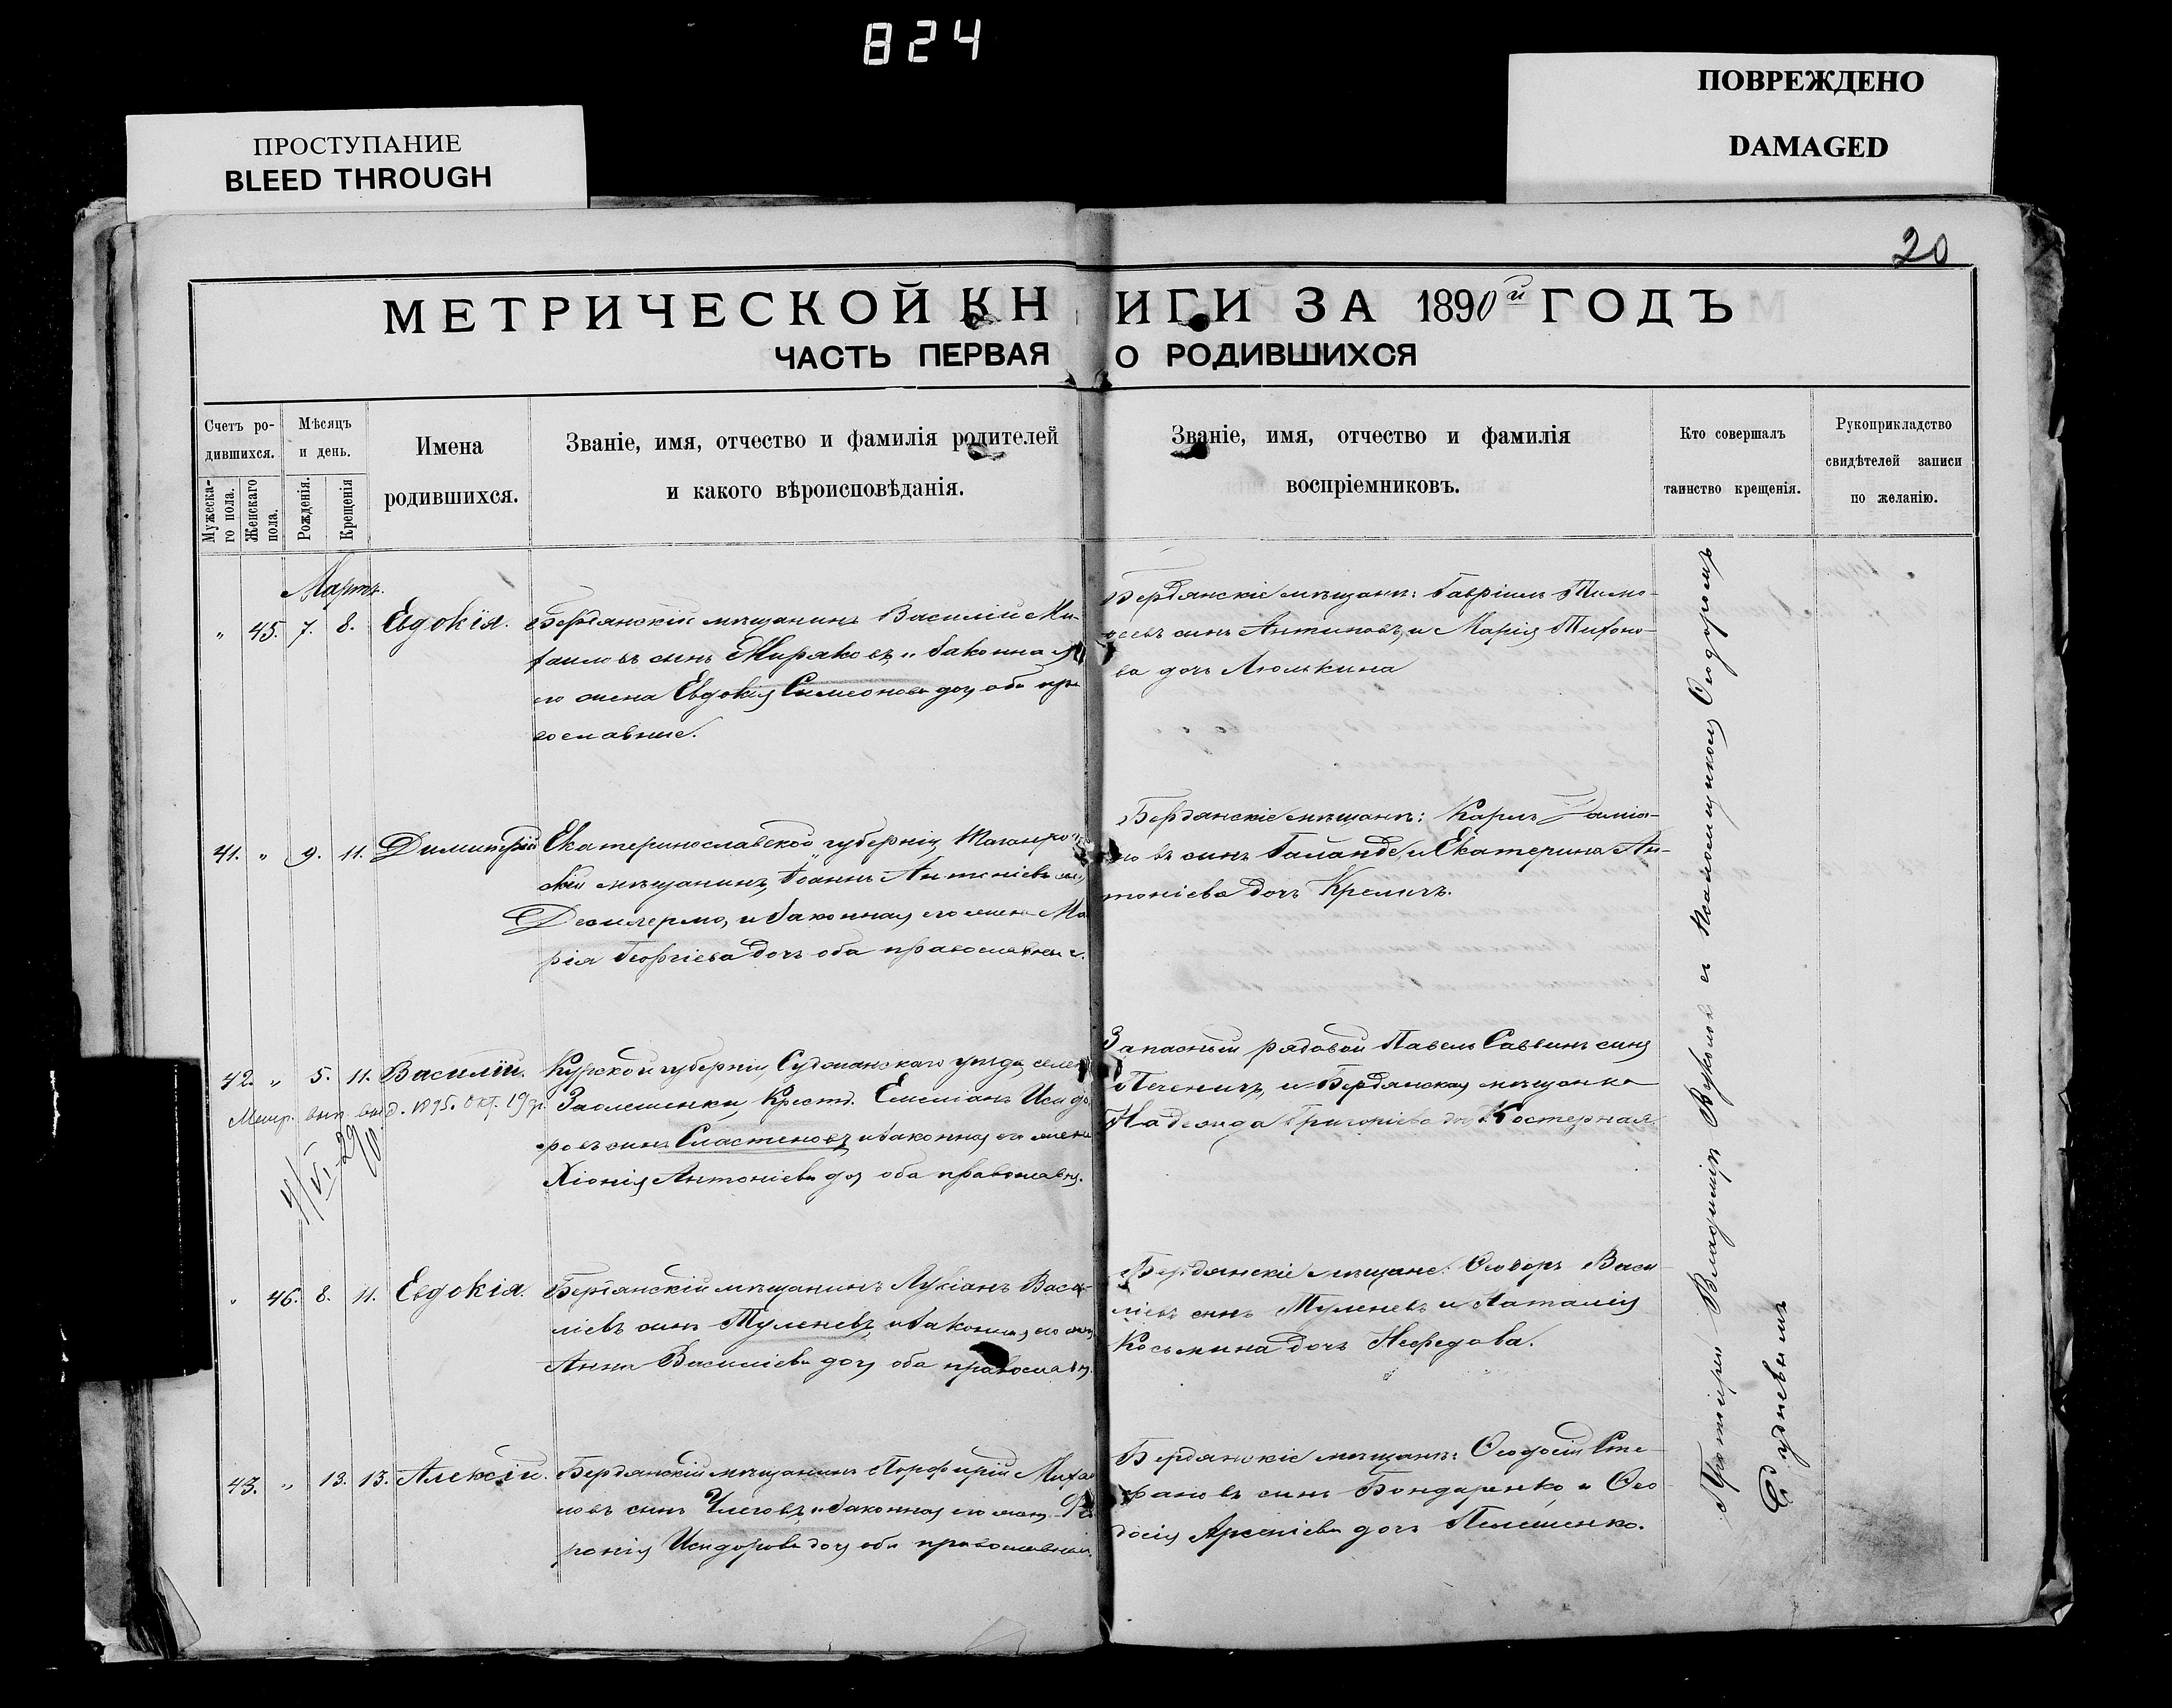 824
ПРОСТУПАНИЕ
BLEED THROUGH
ПОВРЕЖДЕНО
DAMAGED
20
МЕТРИЧЕСКОЙ КНИГИ ЗА 1890й ГОДЪ
ЧАСТЬ ПЕРВАЯ О РОДИВШИХСЯ
Счетъ ро-
дившихся.
Мужеска-
го пола.
Женскаго
пола.
Мѣсяцъ
и день.
Рожденія.
Крещенія
Имена
родившихся.
Званіе, имя, отчество и фамилія родителей
и какого вѣроисповѣданія.
Званіе, имя, отчество и фамилія
воспріемниковъ.
Кто совершалъ
таинство крещенія.
Рукоприкладство
свидѣтелей записи
по желанію.
Мартъ.
" 45. 7. 8. Евдокія.
Бердянскій мѣщанинъ Василій Ми-
хаиловъ сынъ Жиряковъ, и законная
его жена Евдокія Симеонова доч, оба пра
вославные.
Бердянскіе мѣщане: Гавріилъ Тимо-
ѳеевъ сынъ Антиповъ, и Марія Тихоно-
ва дочь Люлькина
41. " 9. 11. Димитрій
Екатеринославской губерніи, Таганрог
скій мѣщанинъ, Іоаннъ Антоніевъ
и законная его жена Ма
рія Георгіева дочь оба православные.
Бердянскіе мѣщане: Карлъ
въ сынъ Галанде и Екатерина Ан-
тоніева дочь
42. " 5. 11. Василій.
Метр. вып. выд. 1895. Окт. 19
Курской губерніи, Суджанскаго уѣзда, села
Заолешенки, Крест. Емеліанъ Исидо
ровъ сынъ Сластеновъ, и законная его жена
Хіонія Антоніева доч оба православн.
Запасный рядовой Павелъ Саввинъ сынъ
Печеничъ, и Бердянская мѣщанка
Надежда Григоріева доч Костерная.
" 46. 8. 11. Евдокія.
Бердянскій мѣщанинъ Лукіанъ Васи-
ліевъ сынъ Туленевъ, и законная его жена
Анна Василіева доч оба православн.
Бердянскіе мѣщане: Ѳеодоръ Васи-
ліевъ сынъ Туленевъ и Наталія
Косьмина дочь Нефедова.
43. " 13. 13. Алексій.
Бердянскій мѣщанинъ Порфирій Михаи
ловъ сынъ и законная его жена Фев
ронія Исидорова доч оба православные.
Бердянскіе мѣщане: Ѳеодосій Сте-
фановъ сынъ Бондаренко, и Ѳео
досія Арсеніева дочь Пелешенко.
Протоіерей Владиміръ Вуколовъ съ псаломщикомъ Ѳеодоромъ